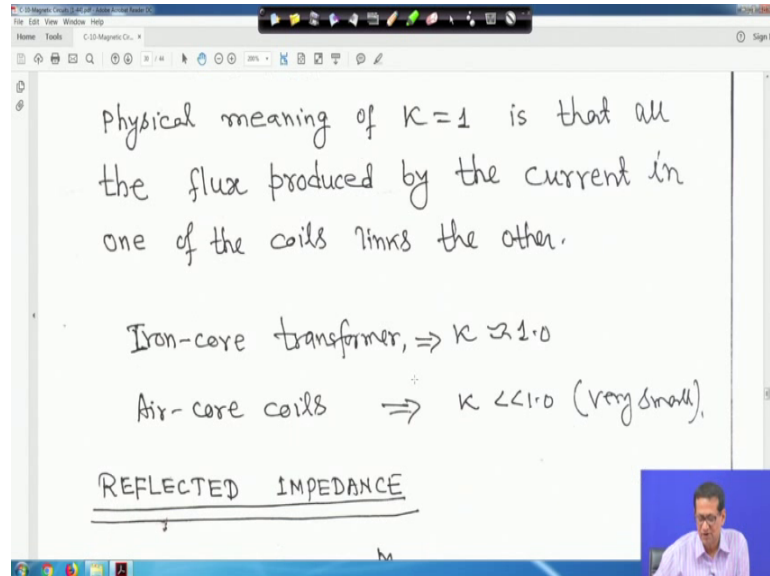 C-10-Magnetic Circuits (1-44).pdf - Adobe Acrobat Reader DC
File Edit View Window Help
Home Tools C-10-Magnetic Cir... × Sign
200%
Physical meaning of K = 1 is that all
the flux produced by the current in
one of the coils links the other.
Iron-core transformer, ⇒ K ≈ 1.0
Air-core coils ⇒ K <<1.0 (very small).
REFLECTED IMPEDANCE
M